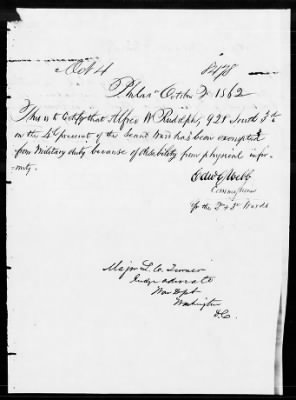 Oct 4
Phila Octob 1862
This is to Certify that Alfred W Rudolph, 921 South 3d St
on the 4th precinct of the Second Ward has been exempted
from Military duty because of disability from physical infir-
mity.
Edw G Webb
Commissioner
for the 2d & 3d Wards
Major L. C. Turner
Judge Advocate
War Dept
Washington
D.C.